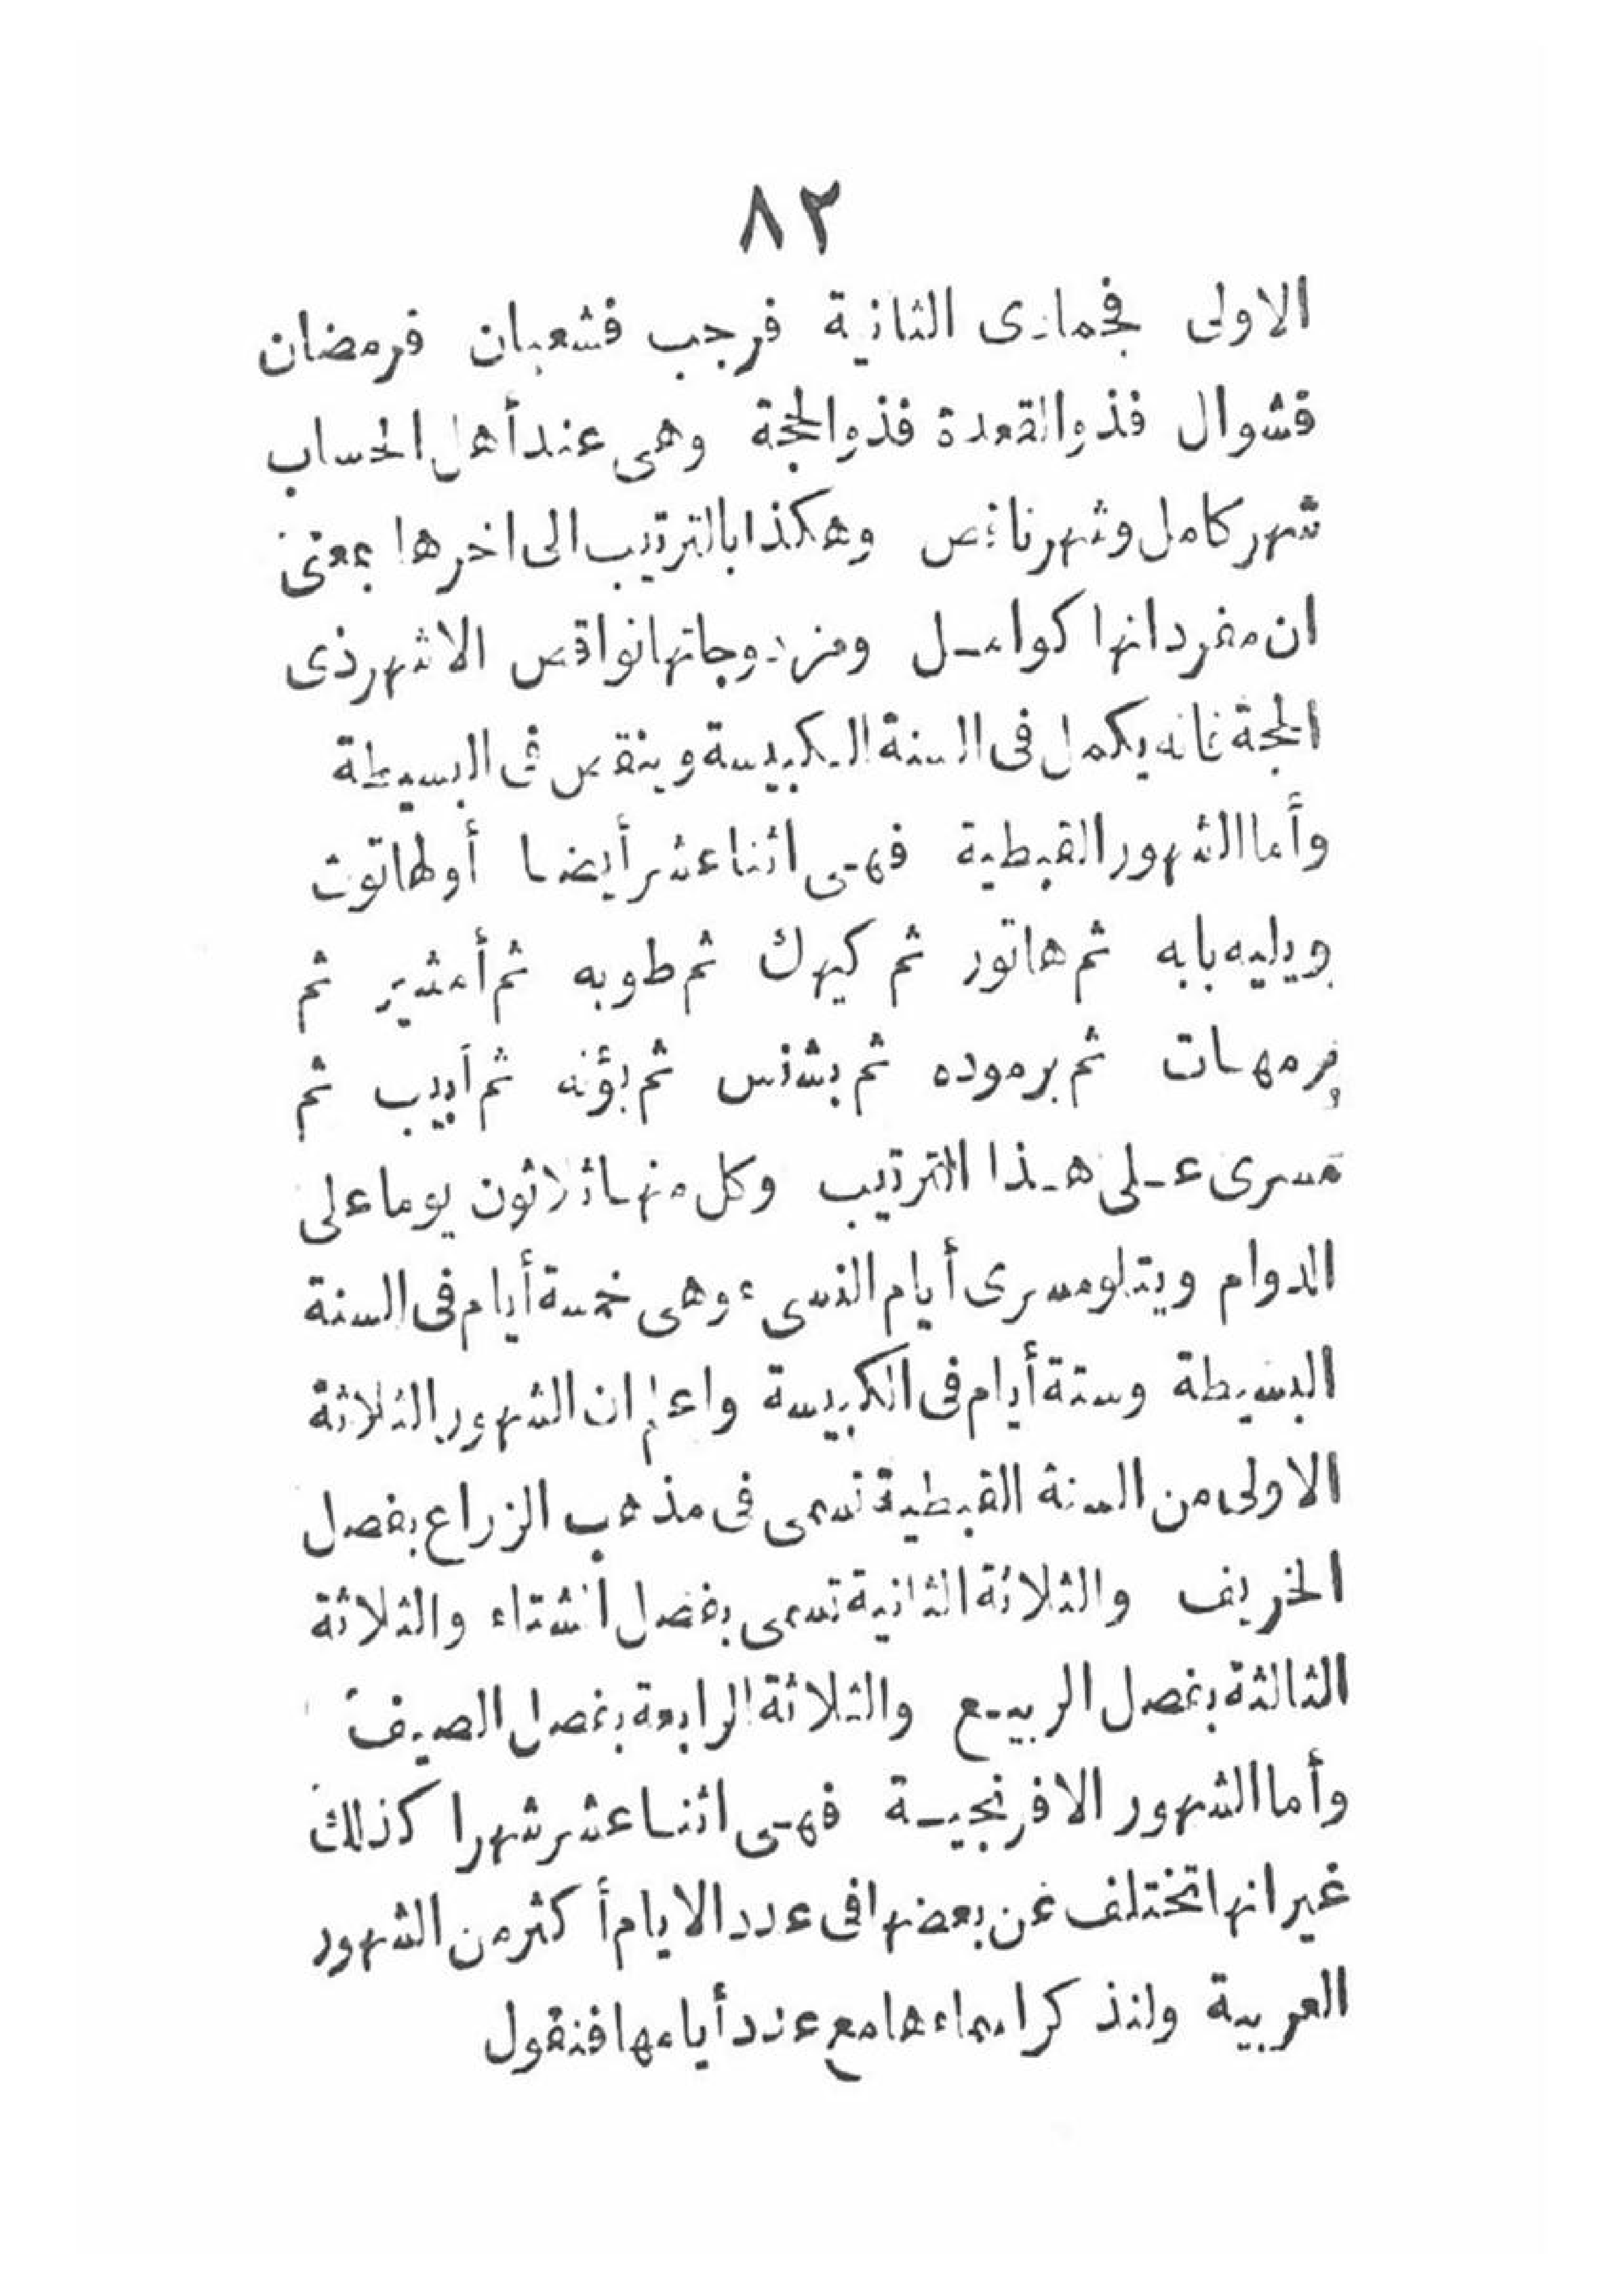 ٨٣
الاولى فجمادى الثانية فرجب فشعبان فرمضان
فشوال فذوالقعدة فذوالحجة وهى عندأهل الحساب
شهر كامل وشهر ناقص وهكذا بالترتيب الى اخرها بمعنى
ان مفرداتها كوامل ومزدوجاتها نواقص الا شهر ذى
الحجة فانه يكمل فى السنة الكبيسة وينقص فى البسيطة
وأما الشهور القبطية فهى اثنا عشر أيضا أولها توت
ويليه بابه ثم هاتور ثم كيهك ثم طوبه ثم أمشير ثم
برمهات ثم برموده ثم بشنس ثم بؤنه ثم أبيب ثم
مسرى على هذا الترتيب وكل منها ثلاثون يوما على
الدوام ويتلو مسرى أيام النسىء وهى خمسة أيام فى السنة
البسيطة وستة أيام فى الكبيسة واعلم ان الشهور الثلاثة
الاولى من السنة القبطية تسمى فى مذهب الزراع بفصل
الخريف والثلاثة الثانية تسمى بفصل الشتاء والثلاثة
الثالثة بفصل الربيع والثلاثة الرابعة بفصل الصيف
وأما الشهور الافرنجية فهى اثنا عشر شهرا كذلك
غير انها تختلف عن بعضها فى عدد الايام أكثر من الشهور
العربية ولنذكر اسماءها مع عدد أيامها فنقول